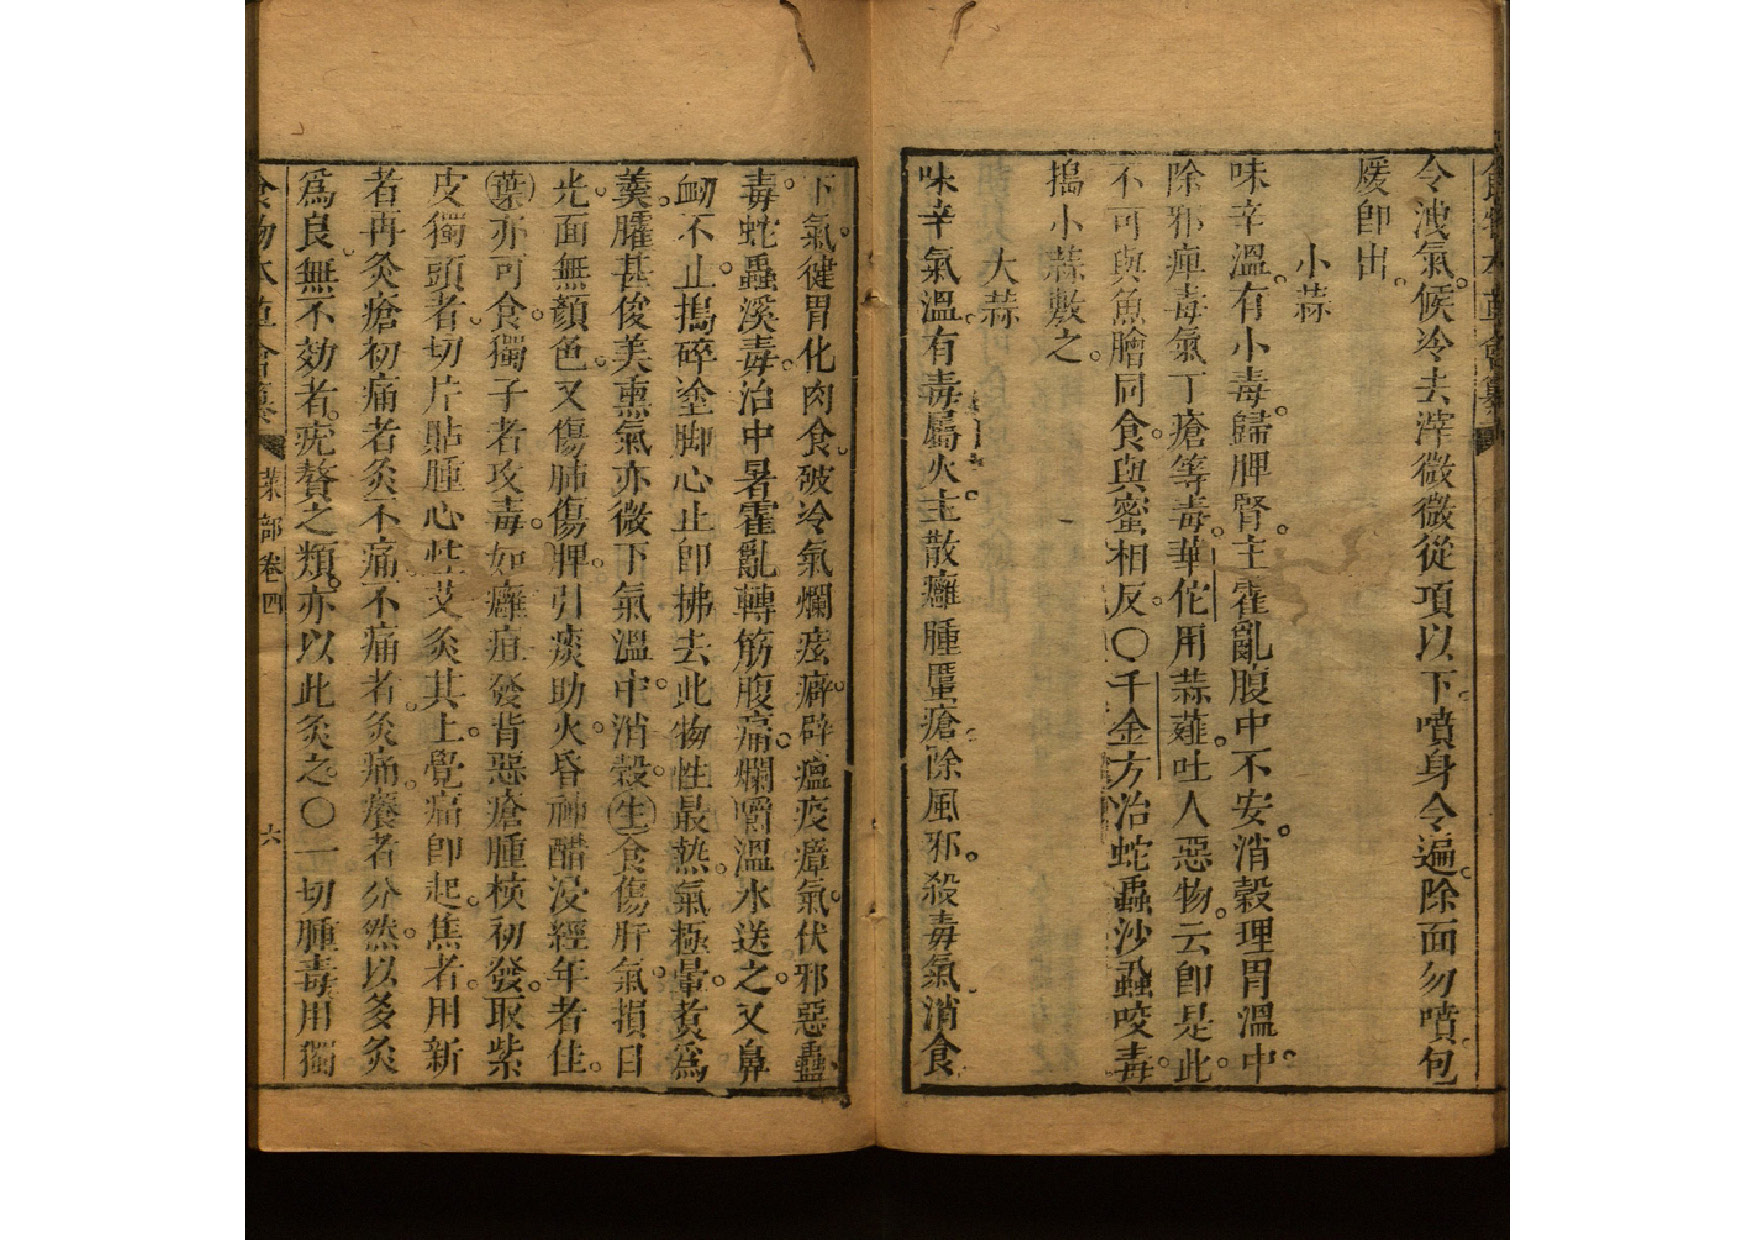 食物本草會纂
令洩氣。候冷去滓微微從項以下。噴身令遍。除面勿噴。包
煖卽出。
小蒜
味辛溫。有小毒。歸脾腎。主霍亂腹中不安。消穀理胃溫中。
除邪痺毒氣丁瘡等毒。華佗用蒜薤。吐人惡物。云卽是此。
不可與魚膾同食。與蜜相反。〇千金方治蛇蟲沙蝨咬毒。
搗小蒜敷之。
大蒜
味辛氣溫。有毒屬火。主散癰腫䘌瘡。除風邪。殺毒氣消食
下氣。健胃化肉食。破冷氣爛痃癖。辟瘟疫瘴氣。伏邪惡蠱
毒。蛇蟲溪毒。治中暑霍亂轉筋腹痛。爛嚼溫水送之。又鼻
衄不止。搗碎塗脚心止卽拂去此物性最熱。氣極葷。煑爲
羹。臛甚俊美熏氣亦微下氣溫中。消穀。生食傷肝氣。損目
光。面無顏色。又傷肺傷脾。引痰助火。昏神醋浸經年者佳。
葉亦可食。獨子者攻毒。如癰疽發背惡瘡腫核初發。取紫
皮獨頭者。切片貼腫心炷艾灸其上。覺痛卽起。焦者。用新
者再灸瘡初痛者灸不痛不痛者。灸痛。癢者分然。以多灸
爲良。無不効者。疣贅之類。亦以此灸之。〇一切腫毒用獨
食物本草會纂
菜部卷四
六